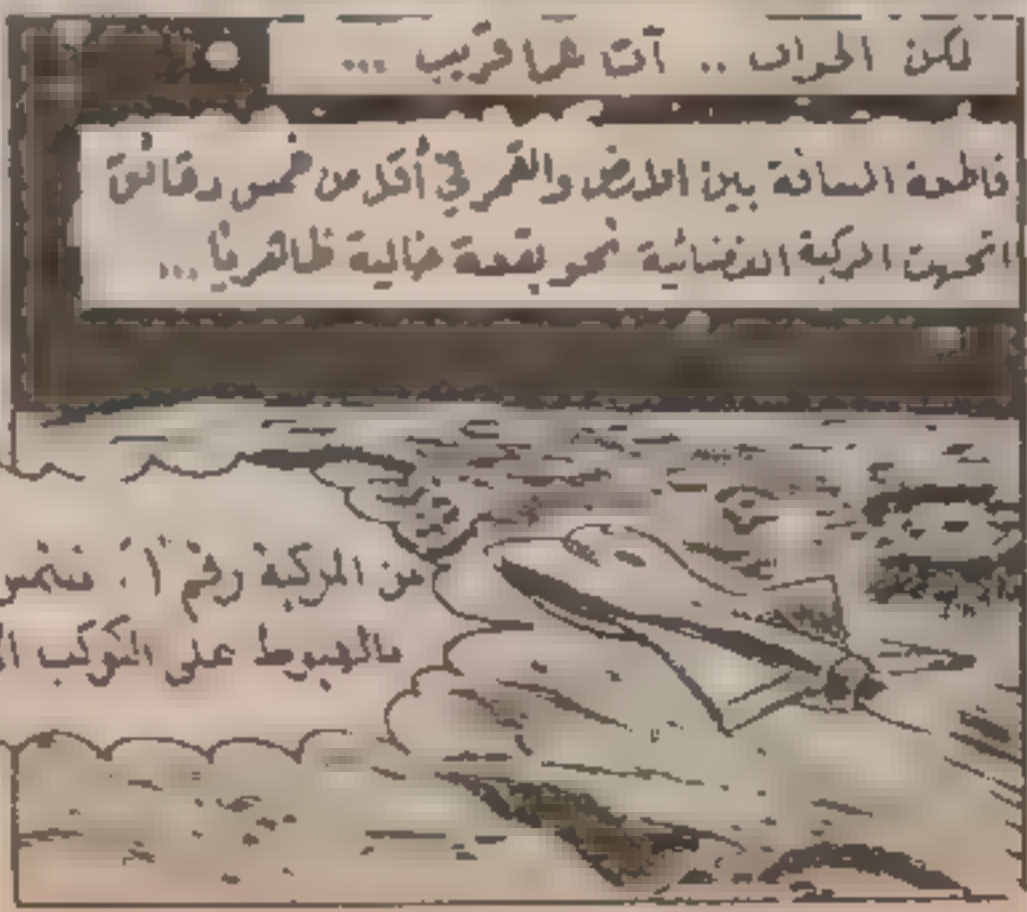 لكن الجواب .. آت عما قريب ...
قاطعة المسافة بين الأرض والقمر في أقل من خمس دقائق
اتجهت المركبة الفضائية نحو بقعة خالية ظاهريا ...
من المركبة رقم ١ . سنقوم
بالهبوط على الكوكب